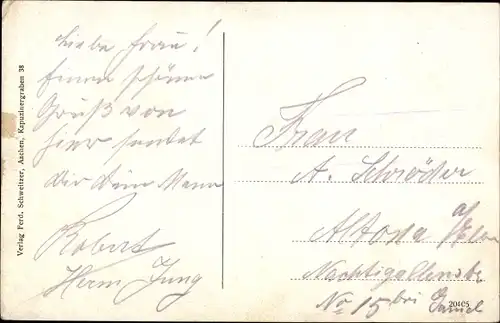 Liebe Frau!
Einen schönen
Gruß von
hier sendet
Dir Dein Mann
Robert
Herm Jung
Frau
A. Schröder
Altona a/Elbe
Nachtigallenstr
No 15 bei
Verlag Ferd. Schweitzer, Aachen, Kapuzinergraben 38